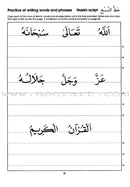 Practice of writing words and phrases Naskh script خط النسخ
الله تعالى سبحانه
عز وجل جلاله
القرآن الكريم